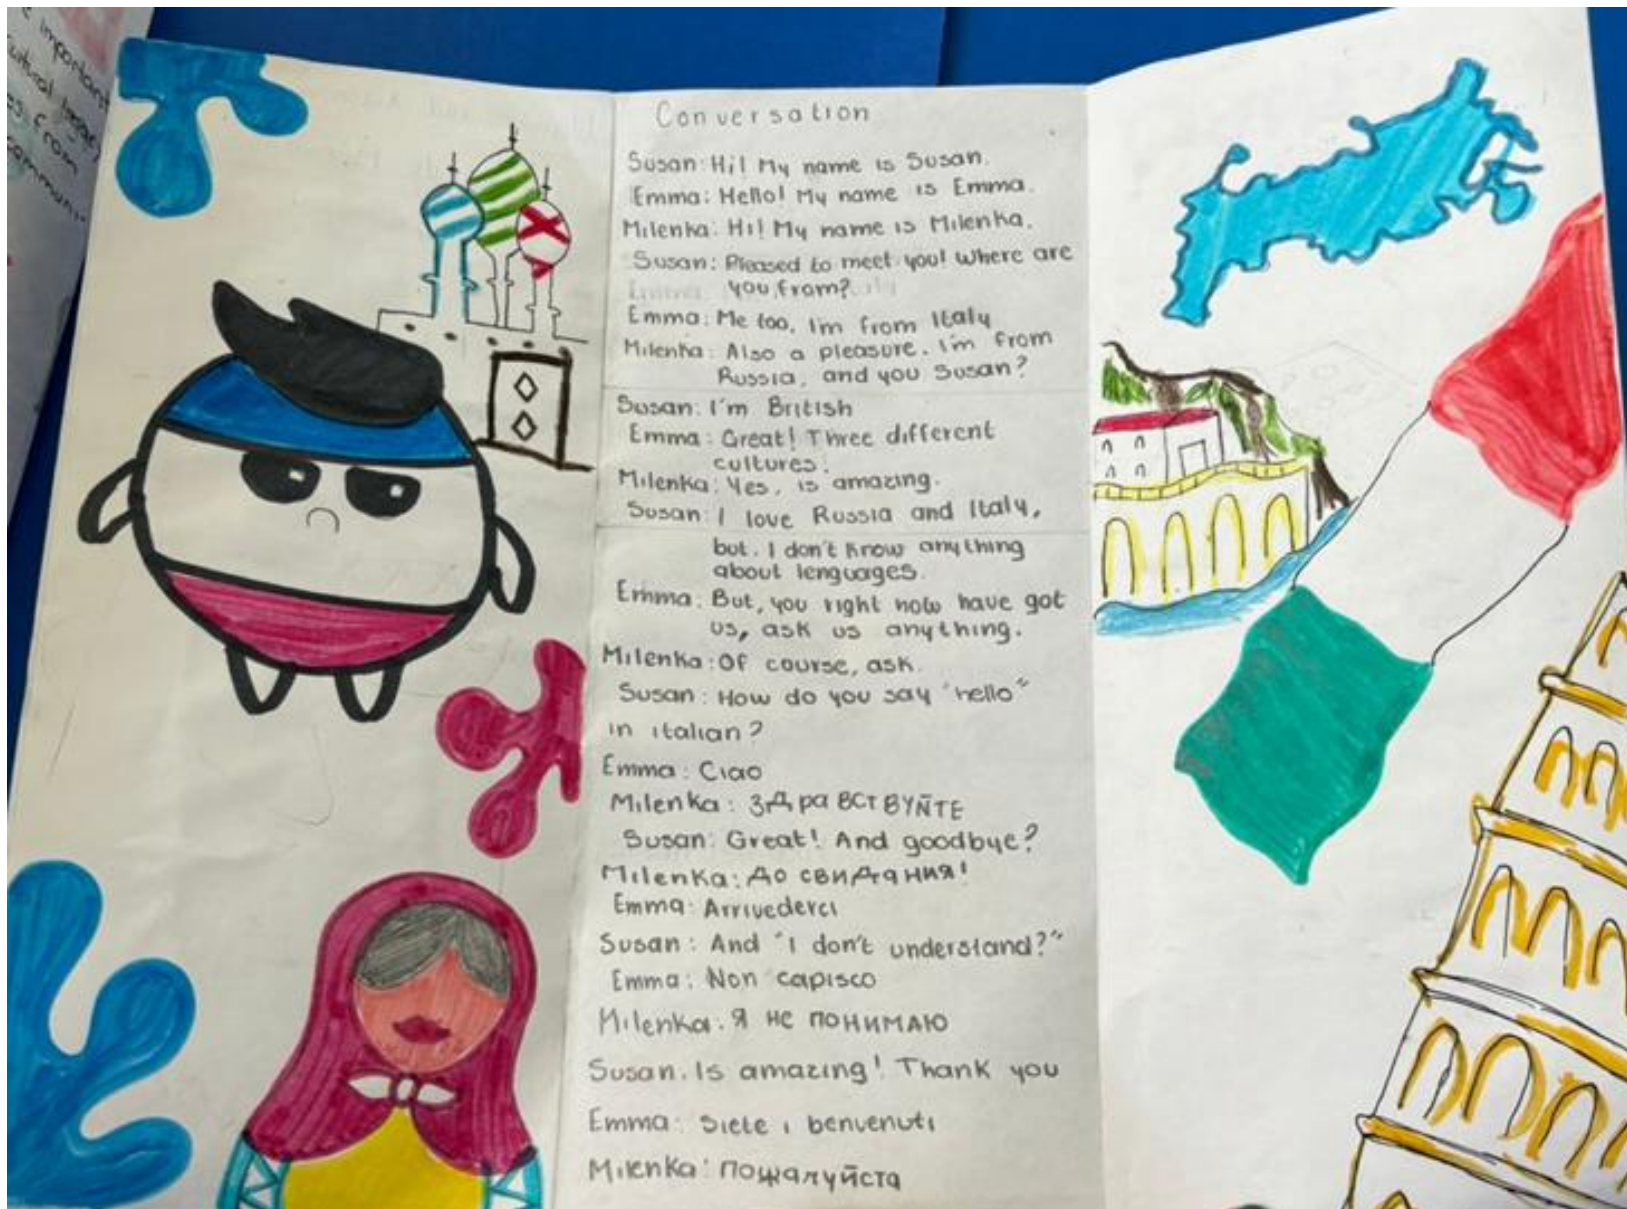 important
from
communi-
Conversation
Susan: Hi! My name is Susan.
Emma: Hello! My name is Emma.
Milenka: Hi! My name is Milenka.
Susan: Pleased to meet you! Where are
you from?
Emma: Me too, I'm from Italy
Milenka: Also a pleasure. I'm from
Russia, and you Susan?
Susan: I'm British
Emma: Great! Three different
cultures.
Milenka: Yes, is amazing.
Susan: I love Russia and Italy,
but. I don't know anything
about lenguages.
Emma: But, you right now have got
us, ask us anything.
Milenka: Of course, ask.
Susan: How do you say "hello"
in italian?
Emma: Ciao
Milenka: ЗДраВСТВУЙТЕ
Susan: Great! And goodbye?
Milenka: До свидания!
Emma: Arrivederci
Susan: And "I don't understand?"
Emma: Non capisco
Milenka. Я не понимаю
Susan. Is amazing! Thank you
Emma: Siete i benvenuti
Milenka: пожалуйста